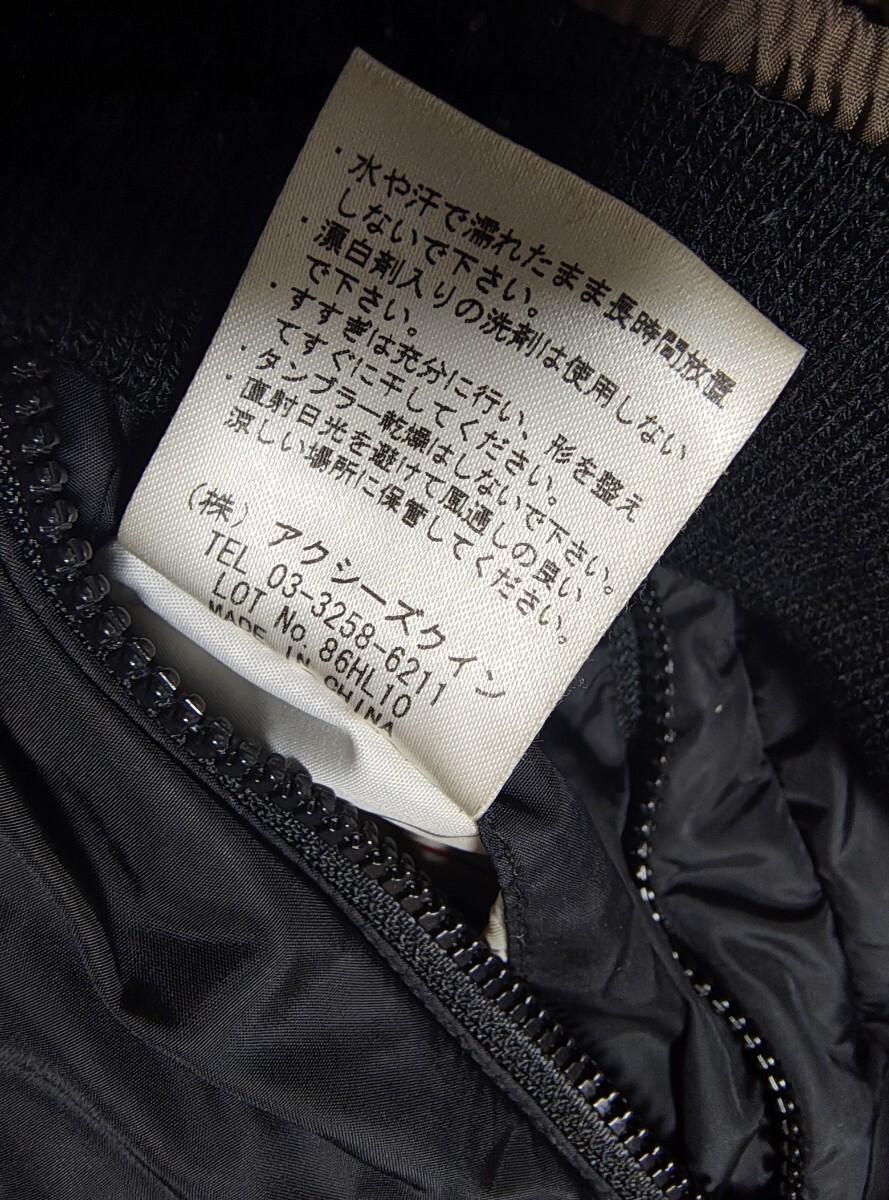 ・水や汗で濡れたまま長時間放置
しないで下さい。
・漂白剤入りの洗剤は使用しない
で下さい。
・すすぎは充分に行い、形を整え
てすぐに干してください。
・タンブラー乾燥はしないで下さい。
・直射日光を避けて風通しの良い
涼しい場所に保管してください。
(株) アクシーズクイン
TEL 03-3258-6211
LOT No. 86HL10
MADE IN CHINA